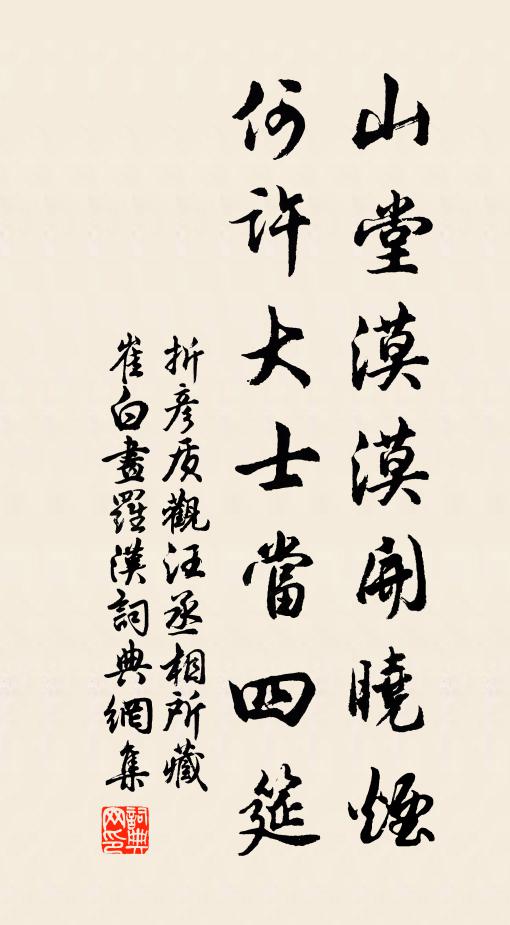 山堂漠漠開曉煙
何許大士當四筵
折彥质觀汪丞相所藏
崔白畫羅漢詞典網集
詞典
网印